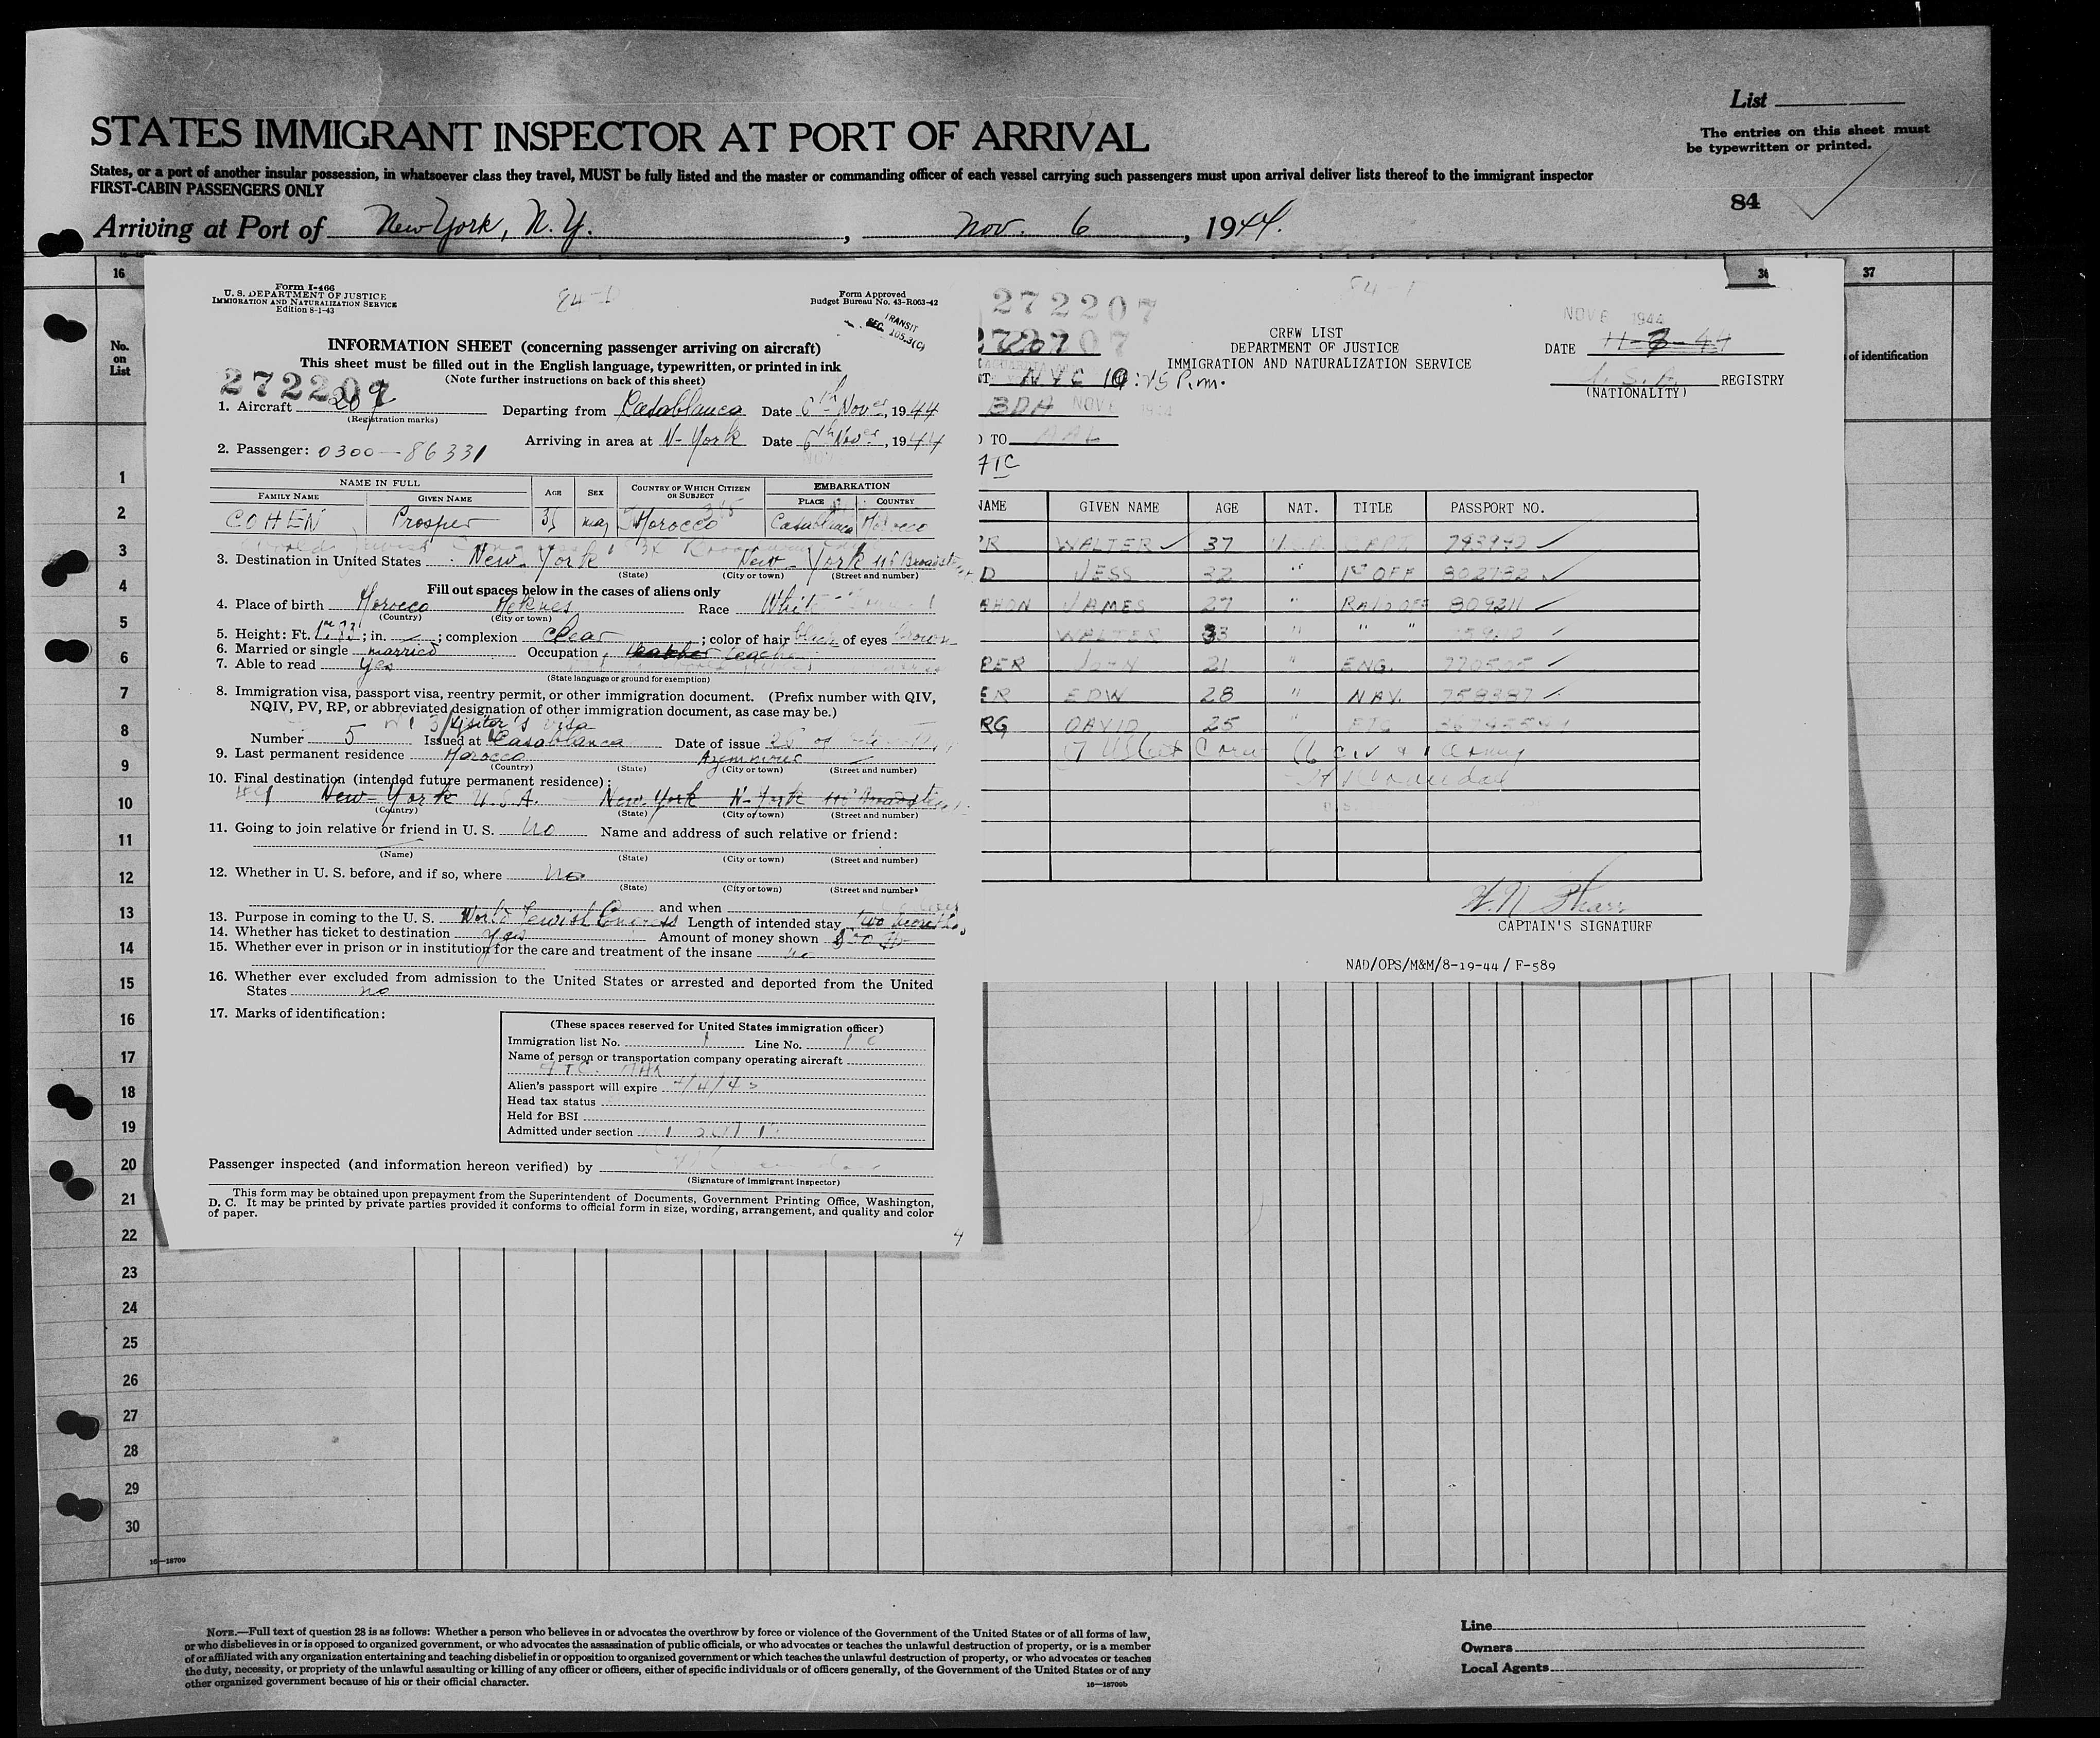 List
The entries on this sheet must
be typewritten or printed.
STATES IMMIGRANT INSPECTOR AT PORT OF ARRIVAL
States, or a port of another insular possession, in whatsoever class they travel, MUST be fully listed and the master or commanding officer of each vessel carrying such passengers must upon arrival deliver lists thereof to the immigrant inspector
FIRST-CABIN PASSENGERS ONLY
84
Arriving at Port of New York, N.Y., Nov. 6, 1944.
16
36
37
No.
on
List
of identification
Form I-466
U. S. DEPARTMENT OF JUSTICE
IMMIGRATION AND NATURALIZATION SERVICE
Edition 8-1-43
Form Approved
Budget Bureau No. 43-R063-42
TRANSIT
SEC. 105.3(C)
INFORMATION SHEET (concerning passenger arriving on aircraft)
This sheet must be filled out in the English language, typewritten, or printed in ink
(Note further instructions on back of this sheet)
272207
1. Aircraft 209 Departing from Casablanca Date 6th Nover, 1944
(Registration marks)
Arriving in area at N-York Date 6th Nover, 1944
2. Passenger: 0300-86331
NAME IN FULL
FAMILY NAME GIVEN NAME AGE SEX COUNTRY OF WHICH CITIZEN OR SUBJECT EMBARKATION
PLACE COUNTRY
COHEN Prosper 35 Morocco Casablanca Morocco
3. Destination in United States New York New-York
(State) (City or town) (Street and number)
Fill out spaces below in the cases of aliens only
4. Place of birth Morocco Meknes Race White
(Country) (City or town)
5. Height: Ft. ; in. ; complexion clear ; color of hair black of eyes brown
6. Married or single married Occupation teacher
7. Able to read yes
(State language or ground for exemption)
8. Immigration visa, passport visa, reentry permit, or other immigration document. (Prefix number with QIV,
NQIV, PV, RP, or abbreviated designation of other immigration document, as case may be.)
visitor's visa
Number 5 Issued at Casablanca Date of issue
9. Last permanent residence Morocco Azemmour
(Country) (State) (City or town) (Street and number)
10. Final destination (intended future permanent residence):
New-York U.S.A. New York N-York
(Country) (State) (City or town) (Street and number)
11. Going to join relative or friend in U. S. No Name and address of such relative or friend:
(Name) (State) (City or town) (Street and number)
12. Whether in U. S. before, and if so, where No
(State) (City or town) (Street and number)
and when
13. Purpose in coming to the U. S. World Jewish Congress Length of intended stay two months
14. Whether has ticket to destination yes Amount of money shown
15. Whether ever in prison or in institution for the care and treatment of the insane no
16. Whether ever excluded from admission to the United States or arrested and deported from the United
States no
17. Marks of identification:
(These spaces reserved for United States immigration officer)
Immigration list No. 1 Line No.
Name of person or transportation company operating aircraft
Alien's passport will expire
Head tax status
Held for BSI
Admitted under section
Passenger inspected (and information hereon verified) by
(Signature of Immigrant Inspector)
This form may be obtained upon prepayment from the Superintendent of Documents, Government Printing Office, Washington,
D. C. It may be printed by private parties provided it conforms to official form in size, wording, arrangement, and quality and color
of paper.
4
272207
NOV 6 1944
CREW LIST
DEPARTMENT OF JUSTICE
IMMIGRATION AND NATURALIZATION SERVICE
DATE 11-3-44
NYC 10:25 P.m.
U.S.A. REGISTRY
(NATIONALITY)
BDA NOV 6 1944
TO
ATC
NAME GIVEN NAME AGE NAT. TITLE PASSPORT NO.
WALTER 37 CAPT
JESS 32 " 1st OFF 802782
JAMES 27 " RADIO OFF 809211
WALTER 33 " " "
PER JOHN 21 " ENG. 770505
ER EDW 28 " NAV. 758387
RG DAVID 25 "
CAPTAIN'S SIGNATURE
NAD/OPS/M&M/8-19-44/ F-589
1
2
3
4
5
6
7
8
9
10
11
12
13
14
15
16
17
18
19
20
21
22
23
24
25
26
27
28
29
30
16—18709
NOTE.—Full text of question 28 is as follows: Whether a person who believes in or advocates the overthrow by force or violence of the Government of the United States or of all forms of law,
or who disbelieves in or is opposed to organized government, or who advocates the assassination of public officials, or who advocates or teaches the unlawful destruction of property, or is a member
of or affiliated with any organization entertaining and teaching disbelief in or opposition to organized government or which teaches the unlawful destruction of property, or who advocates or teaches
the duty, necessity, or propriety of the unlawful assaulting or killing of any officer or officers, either of specific individuals or of officers generally, of the Government of the United States or of any
other organized government because of his or their official character.
16—18709b
Line
Owners
Local Agents